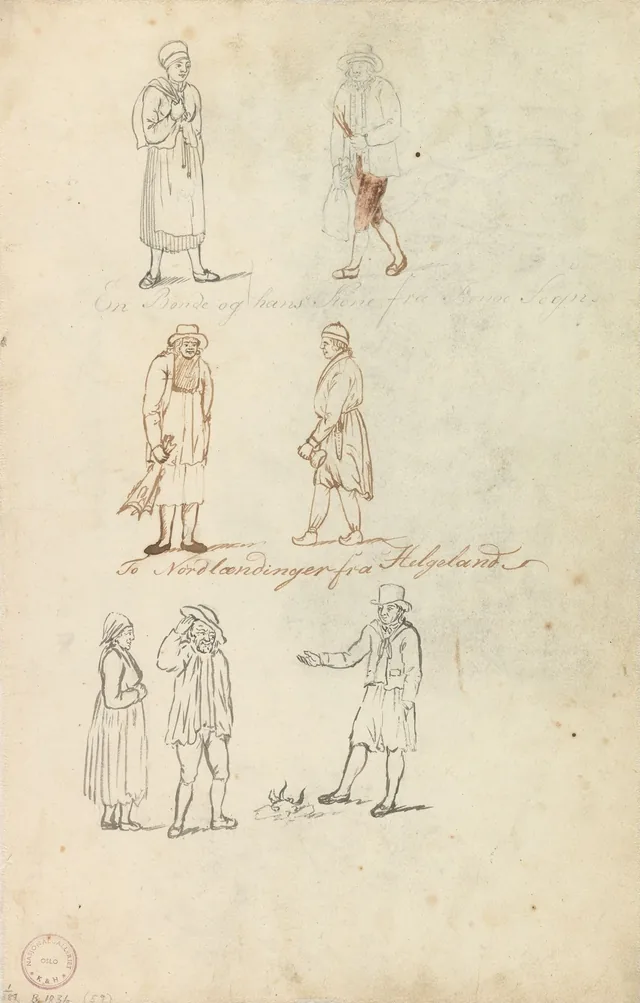 En Bonde og hans Kone fra Sogn.
To Nordlændinger fra Helgeland
NATIONALGALLERIET
OSLO
K.&H.
B. 1834 (59)